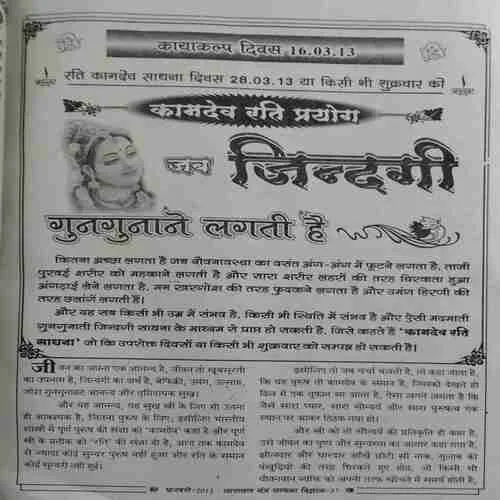 कायाकल्प दिवस 16.03.13
रति कामदेव साधना दिवस 28.03.13 या किसी भी शुक्रवार को
कामदेव रति प्रयोग
जब जिन्दगी
गुनगुनाने लगती है
कितना अच्छा लगता है जब यौवनावस्था का वसंत अंग-अंग में फूटने लगता है, ताजी
पुरवाई शरीर को महकाने लगती है और सारा शरीर लहरों की तरह थिरकता हुआ
अंगड़ाई लेने लगता है, मन खरगोश की तरह फुदकने लगता है और उमंग हिरणी की
तरह छलांगें लगाती है।
और यह सब किसी भी उम्र में संभव है, किसी भी स्थिति में संभव है और ऐसी मदमाती
गुनगुनाती जिन्दगी साधना के माध्यम से प्राप्त हो सकती है, जिसे कहते हैं 'कामदेव रति
साधना' जो कि उपरोक्त दिवसों या किसी भी शुक्रवार को सम्पन्न हो सकती है।
जीवन का अपना एक आनन्द है, जीवन तो खूबसूरती
का उपनाम है, जिन्दगी का अर्थ है, बेफिक्री, उमंग, उल्लास,
जोश गुनगुनाहट आनन्द और तृप्तिदायक सुख।
और यह आनन्द, यह सुख स्त्री के लिए भी उतना
ही आवश्यक है, जितना पुरुष के लिए, इसीलिए भारतीय
शास्त्रों में पूर्ण पुरुष की संज्ञा को "कामदेव" कहा है और पूर्ण
स्त्री के प्रतीक को "रति" की संज्ञा दी है, आज तक कामदेव
से ज्यादा कोई सुन्दर पुरुष नहीं हुआ और रति के समान
कोई सुन्दरी नहीं हुई।
इसीलिए तो जब चर्चा चलती है, तो कहा जाता है,
कि यह पुरुष तो कामदेव के समान है, जिसको देखते ही
दिल में एक तूफान सा आता है, ऐसा लगने लगता है कि
जैसे सारा प्यार, सारा सौन्दर्य और सारा पुरुषत्व एक
स्थान पर आकर ठिठक गया हो।
और स्त्री को तो सौन्दर्य की प्रतिकृति ही कहा है,
उसे जीवन का पुष्प और सुन्दरता का आधार कहा गया है,
झीलदार और धारदार आँखें छोटी सी नाक, गुलाब की
पंखुड़ियों की तरह थिरकते हुए होंठ, जो किसी भी
यौवनवान व्यक्ति को अपनी तरफ खींचने में समर्थ होती है,
फरवरी-2013 नारायण मंत्र साधना विज्ञान